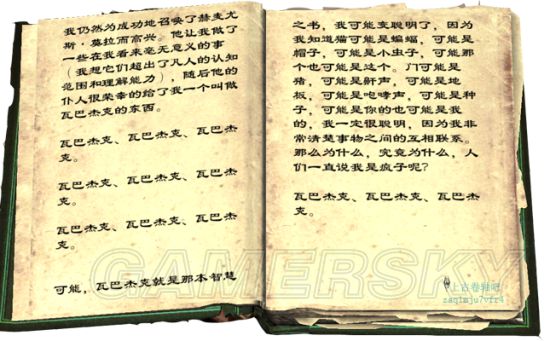 我仍然为成功地召唤了赫麦尤
斯·莫拉而高兴。他让我做了
一些在我看来毫无意义的事
（我想它们超出了凡人的认知
范围和理解能力），随后他的
仆人很荣幸的给了我一个叫做
瓦巴杰克的东西。
瓦巴杰克、瓦巴杰克、瓦巴杰
克。
瓦巴杰克、瓦巴杰克、瓦巴杰
克。
瓦巴杰克、瓦巴杰克、瓦巴杰
克。
可能，瓦巴杰克就是那本智慧
之书，我可能变聪明了，因为
我知道猫可能是蝙蝠，可能是
帽子，可能是小虫子，可能那
个也可能是这个。门可能是
猪，可能是鼾声，可能是地
板，可能是咆哮声，可能是种
子，可能是你的也可能是我
的，我一定很聪明，因为我非
常清楚事物之间的互相联系。
那么为什么，究竟为什么，人
们一直说我是疯子呢？
瓦巴杰克、瓦巴杰克、瓦巴杰
克。
GAMERSKY
上古卷轴吧
zaqimju7vfr4